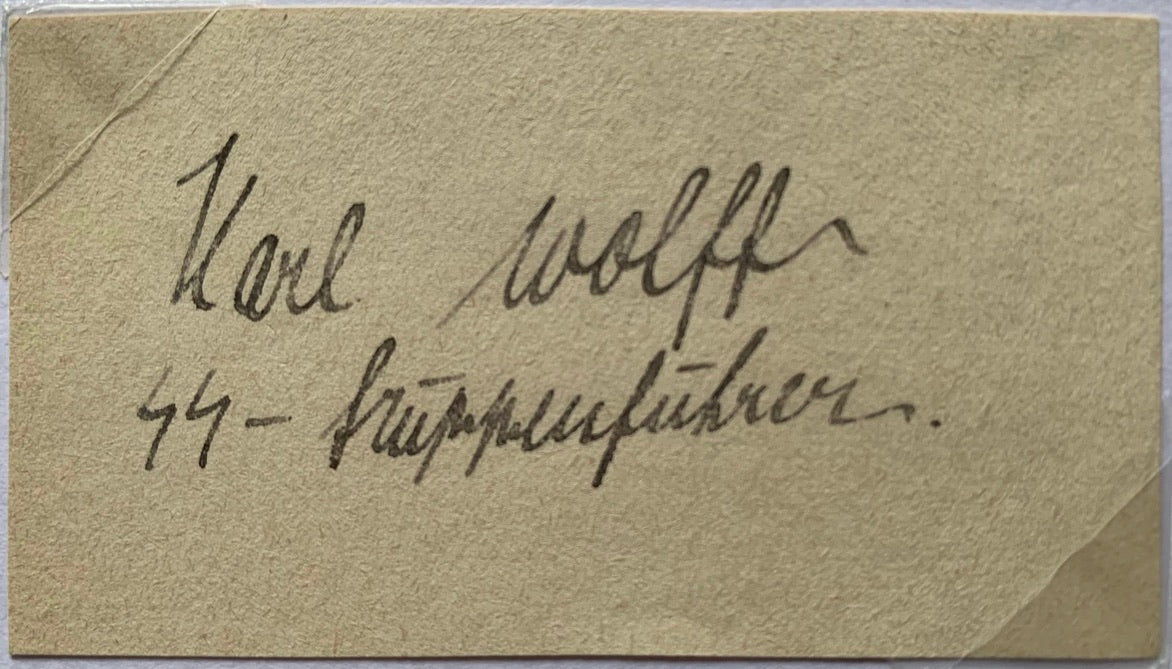 Karl Wolff
SS-Gruppenführer.